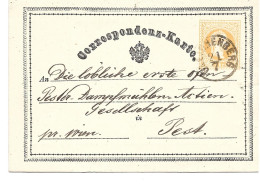 Correspondenz-Karte.
An Die löbliche erste ofen
Pesther Dampfmühlen Actien
Gesellschaft
in
pr. Wien. Pest.